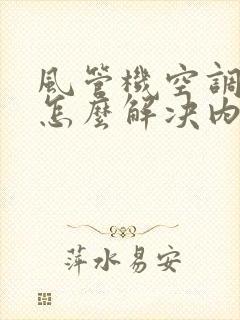 風管機空調
怎麼解决內
萍水易安